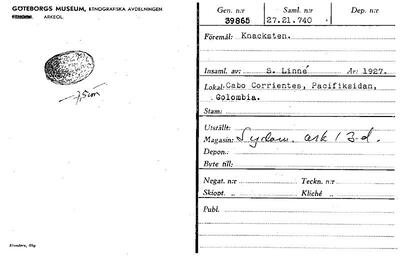 GÖTEBORGS MUSEUM, ETNOGRAFISKA AVDELNINGEN
ARKEOL.
7,5 cm
Elanders, Gbg
Gen. n:r Saml. n:r
39865 27.21.740
Föremål: Knacksten.
Insaml. av: S. Linné År: 1927.
Lokal: Cabo Corrientes, Pacifiksidan,
Colombia.
Stam:
Utställt:
Magasin: Sydam. ark 13 d.
Depon.:
Byte till:
Negat. n:r Teckn. n:r
Skiopt. „ Kliché „
Publ.